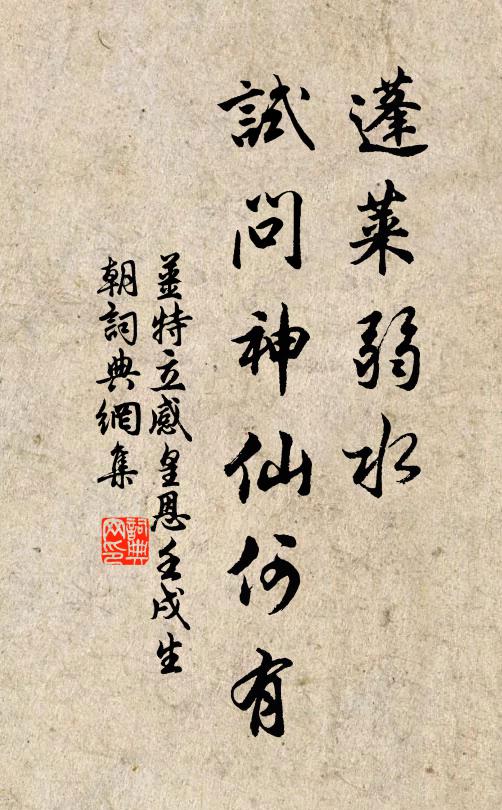 蓬萊弱水
試問神仙何有
姜特立感皇恩壬戌生
朝詞典網集
詞典網印